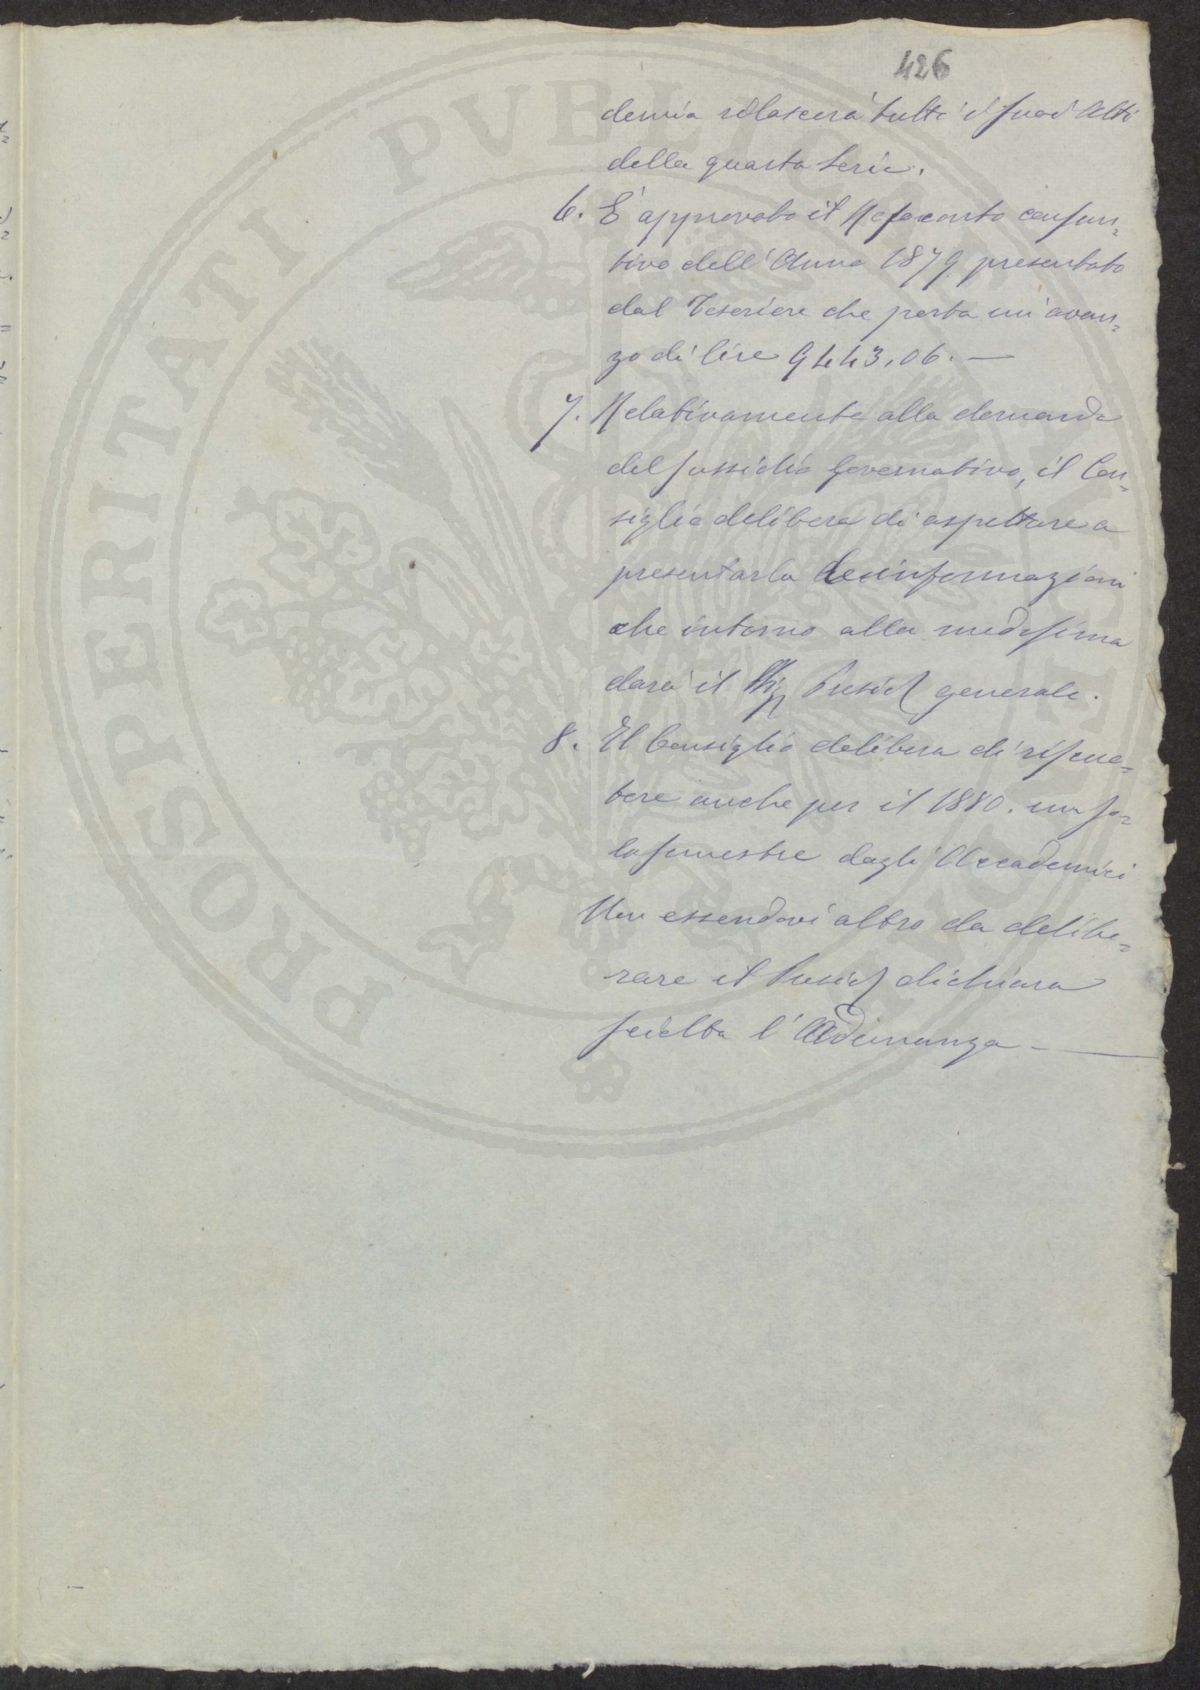 426
demia rilascerà tutti i suoi Atti
della quarta Serie.
6. È approvato il Resoconto consun-
tivo dell'Anno 1879 presentato
dal Tesoriere che porta un avan-
zo di lire 9443,06. —
7. Relativamente alla domanda
del sussidio Governativo, il Con-
siglio delibera di aspettare a
presentarla le informazioni
che intorno alla medesima
darà il Presid generale.
8. Il Consiglio delibera di riscuo-
tere anche per il 1880. un so-
lo semestre dagli Accademici
Non essendovi altro da delibe-
rare il Presid dichiara
sciolta l'Adunanza —
PROSPERITATI PVBLICAE